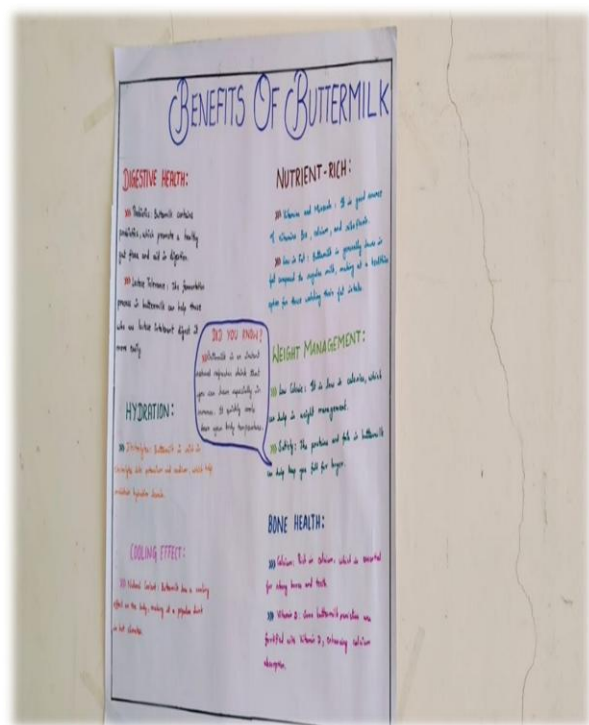 BENEFITS OF BUTTERMILK
DIGESTIVE HEALTH:
>>> Probiotics: Buttermilk contains
probiotics, which promote a healthy
gut flora and aid in digestion.
>>> Lactose Tolerance: The fermentation
process in buttermilk can help those
who are lactose intolerant digest it
more easily.
HYDRATION:
>>> Electrolytes: Buttermilk is rich in
electrolytes like potassium and sodium, which help
maintain hydration levels.
COOLING EFFECT:
>>> Natural Coolant: Buttermilk has a cooling
effect on the body, making it a popular drink
in hot climates.
DID YOU KNOW?
>>> Buttermilk is an instant
natural refresher drink that
you can have especially in
summer. It quickly cools
down your body temperature.
NUTRIENT-RICH:
>>> Vitamins and Minerals: It is good source
of vitamins B12, calcium, and riboflavin.
>>> Low in Fat: Buttermilk is generally lower in
fat compared to regular milk, making it a healthier
option for those watching their fat intake.
WEIGHT MANAGEMENT:
>>> Low Calorie: It is low in calories, which
can help in weight management.
>>> Satiety: The proteins and fats in buttermilk
can help keep you full for longer.
BONE HEALTH:
>>> Calcium: Rich in calcium, which is essential
for strong bones and teeth.
>>> Vitamin D: Some buttermilk products are
fortified with Vitamin D, enhancing calcium
absorption.